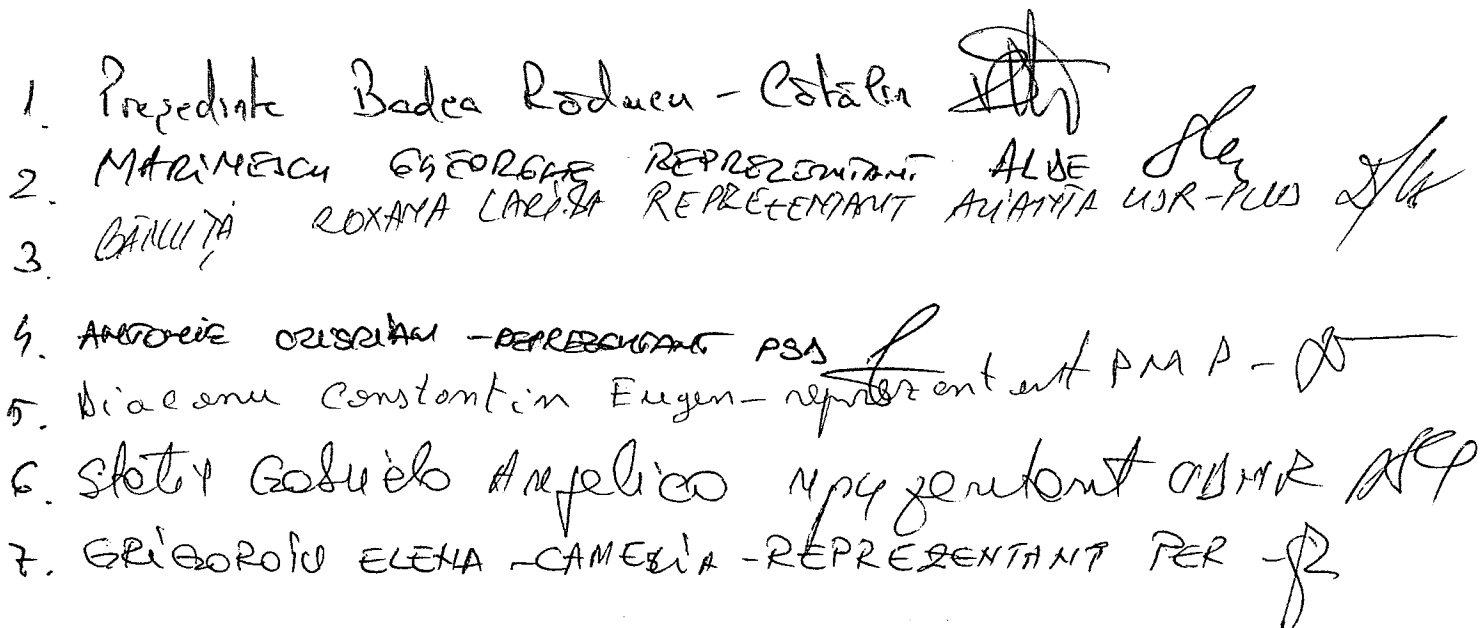 1. Președinte Badea Răducu - Cătălin
2. MARINESCU GHEORGHE REPREZENTANT ALDE
3. BĂNUȚĂ ROXANA LARISA REPREZENTANT ALIANȚA USR-PLUS
4. ANTONIE CRISTIAN - REPREZENTANT PSD
5. Diaconu Constantin Eugen - reprezentant PMP -
6. Gabriela Angelica reprezentant UDMR
7. GRIGOROIU ELENA - CAMELIA - REPREZENTANT PER -